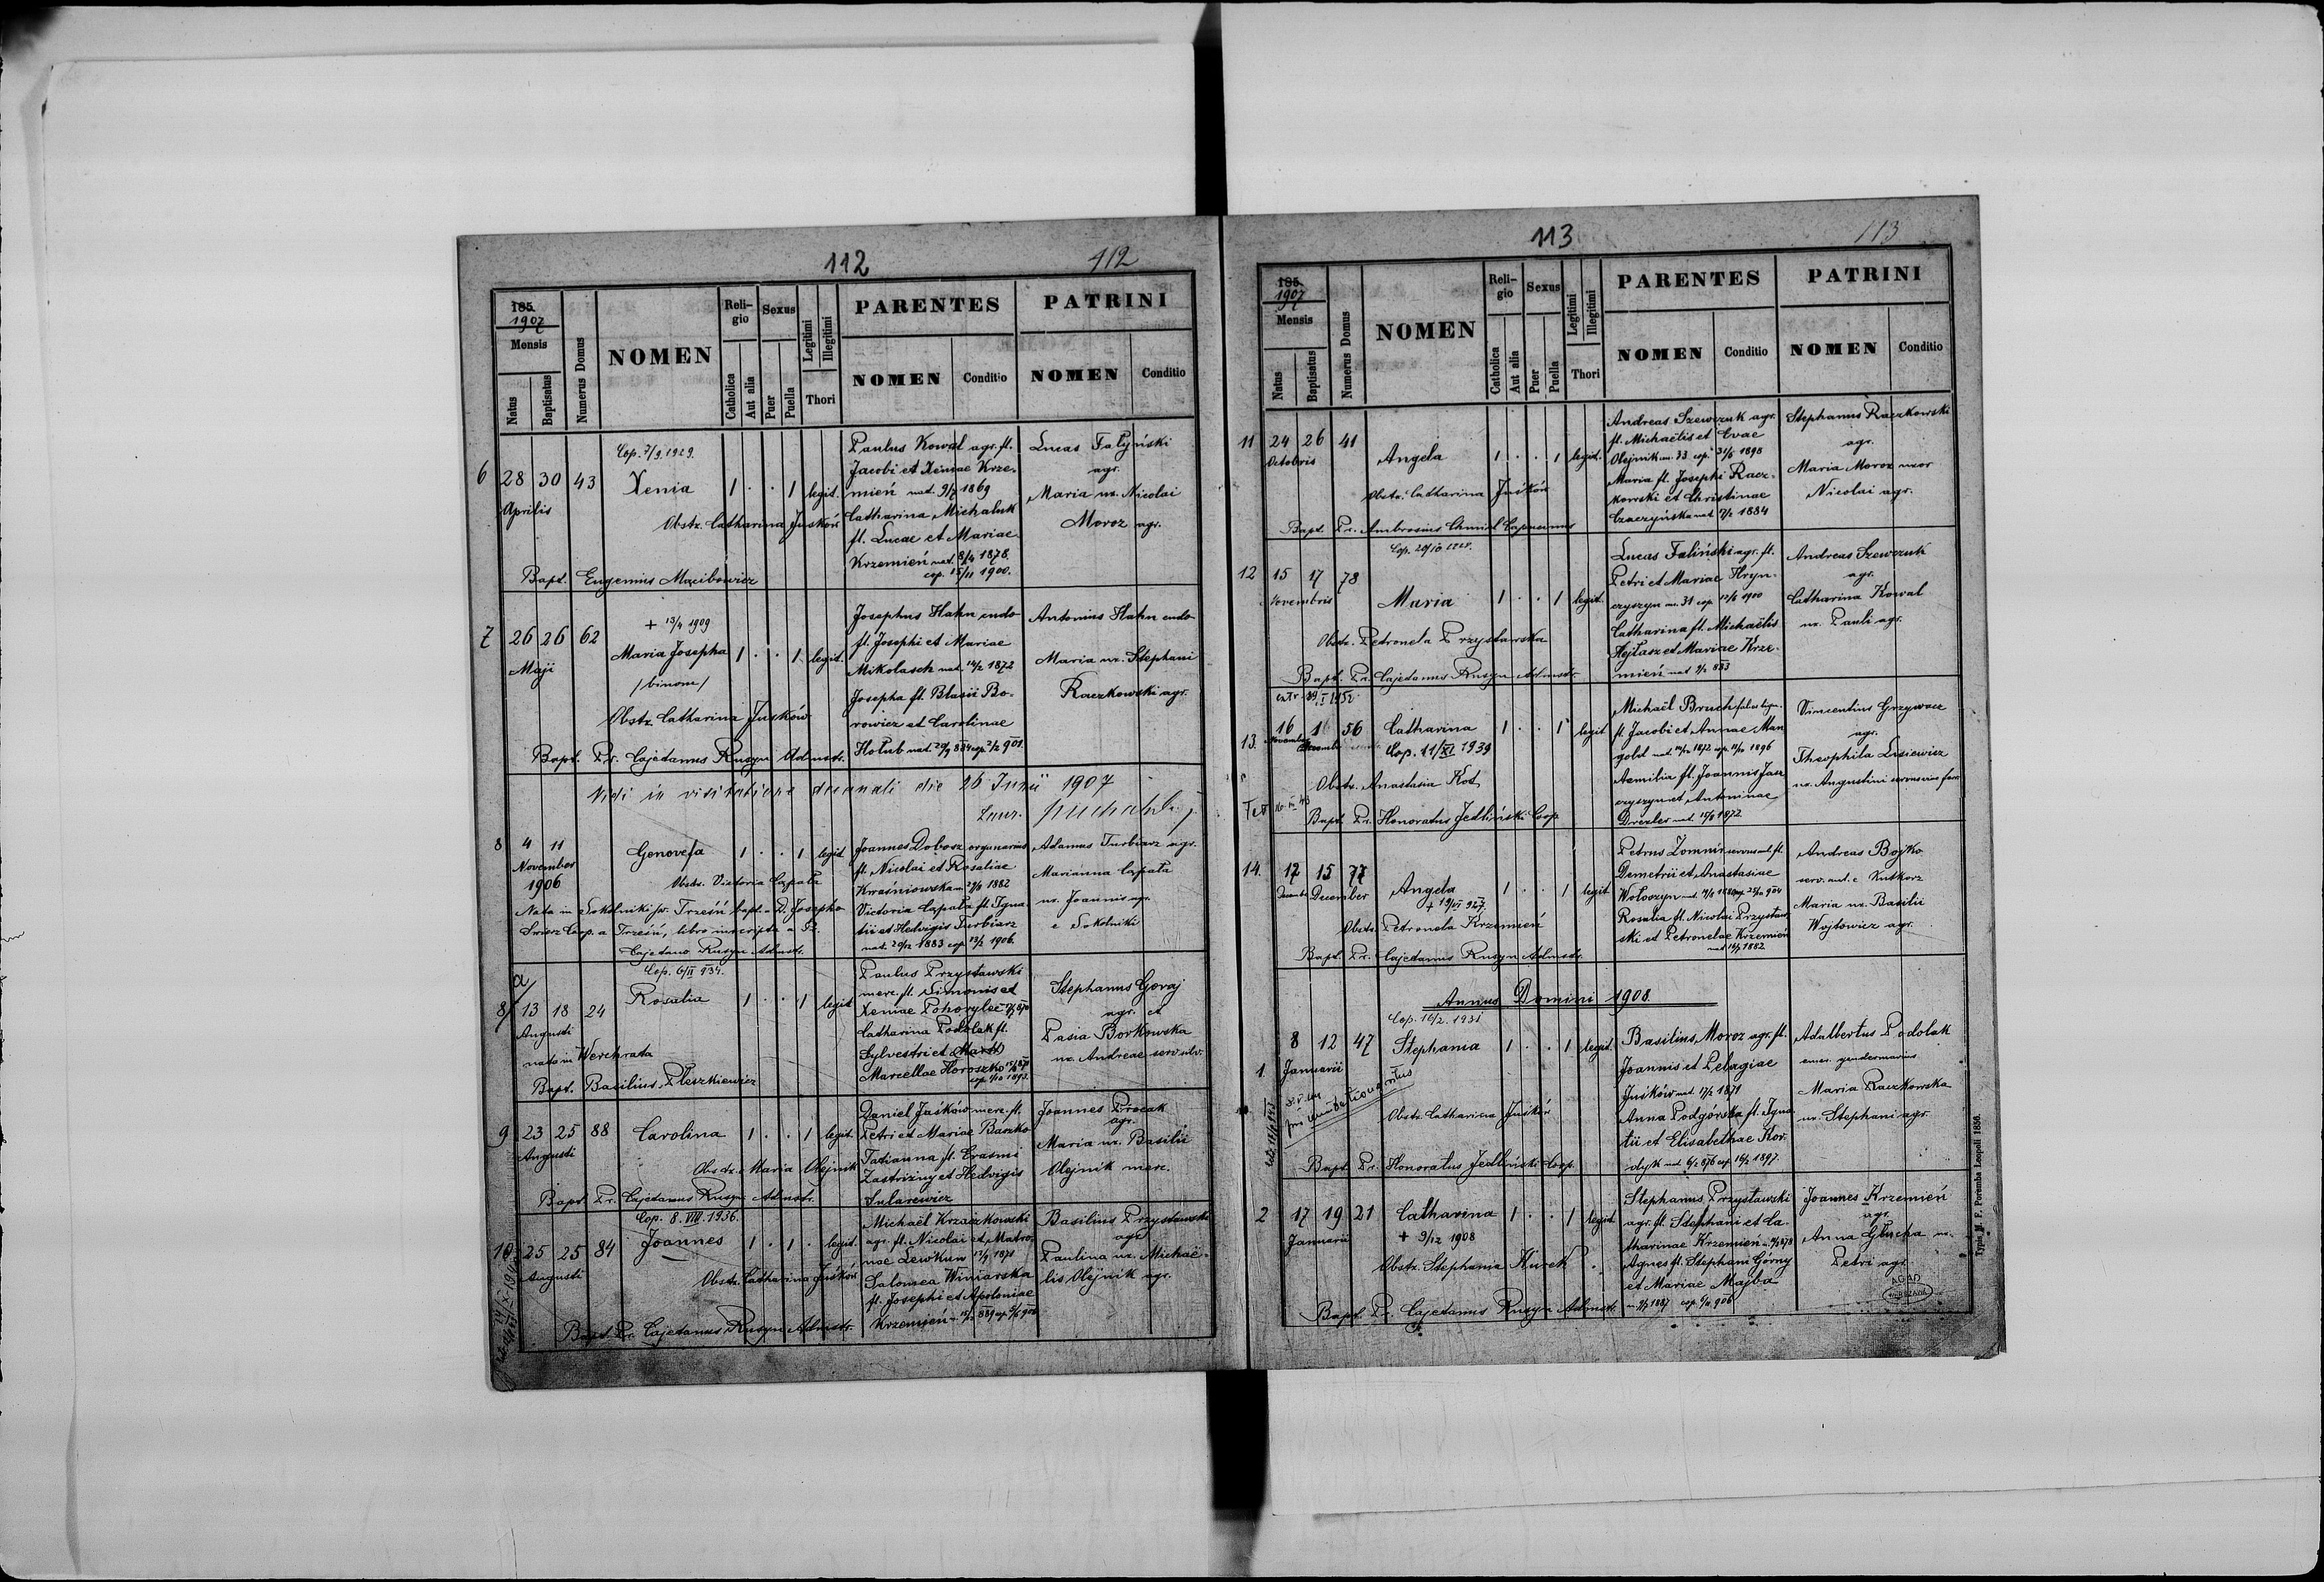 112
412
185.
1907
Mensis
Natus
Baptisatus
Numerus Domus
NOMEN
Reli-
gio
Catholica
Aut alia
Sexus
Puer
Puella
Legitimi
Illegitimi
Thori
PARENTES
NOMEN
Conditio
PATRINI
NOMEN
Conditio
Cop. 7/9. 1929.
6 28 30 43 Xenia 1 . . 1 legit.
Aprilis
Obstr. Catharina Juśków
Bapt. Eugenius Macibowicz
Paulus Kowal agr. fl.
Jacobi et Xeniae Krze-
mień nat. 9/7 1869
Catharina Michaluk
fl. Lucae et Mariae
Krzemień nat. 8/4 1878.
cop. 15/11 1900.
Lucas Falyński
agr.
Maria ux. Nicolai
Moroz agr.
+ 13/4 1909
7 26 26 62 Maria Josepha 1 . . 1 legit.
Maji
/binom/
Obstr. Catharina Juśków
Bapt. Pr. Cajedanus Rusyn Admstr.
Josephus Hahn endo
fl. Josephi et Mariae
Mikolasch nat. 1872
Josepha fl. Blasii Bo-
rowicz et Carolinae
Hołub nat. 20/9 884 cop. 2/2 901.
Antonius Hahn endo
Maria ux. Stephani
Raczkowski agr.
Vidi in visitatione decanali die 26 Junii 1907
8 4 11 Genovefa 1 . . 1 legit
November
1906
Obstr. Victoria Capała
Nata in Sokolniki par. Trześń bapt. a D. Josepho
Świerz Coop. a Trześń, libro inscripta a Pr.
Cajedano Rusyn Admstr.
Joannes Dobosz organarius
fl. Nicolai et Rosaliae
Kraśniowska n. 29/6 1882
Victoria Capała fl. Igna
tii et Hedvigis Turbiarz
nat. 20/12 1883 cop. 13/2 1906.
Adamus Turbiarz agr.
Marianna Capała
ux. Joannis agr.
e Sokolniki
Cop. 6/II 934.
8/a 13 18 24 Rosalia 1 . . 1 legit
Augusti
nata in Werchrata
Bapt. Basilius Pleszkiewicz
Paulus Przysławski
merc. fl. Simonis et
Xeniae Pohorylec
Catharina Podolak fl.
Sylvestri et
Marcellae Horoszko
Stephanus Goraj
agr. et
Pasia Borkowska
ux. Andreae serv. silv.
9 23 25 88 Carolina 1 . . 1 legit.
Augusti
Obstr. Maria Olejnik
Bapt. Pr. Cajedanus Rusyn Admstr.
Daniel Juśków merc. fl.
Petri et Mariae Baczko
Tatianna fl. Erasmi
Zastrizny et Hedvigis
Sularewicz
Joannes Procak
agr.
Maria ux. Basilii
Olejnik merc.
Cop. 8. VIII. 1936.
10 25 25 84 Joannes 1 . 1 . legit.
Augusti
Obstr. Catharina Juśków
Bapt. Pr. Cajedanus Rusyn Admstr.
Michaël Krzaczkowski
agr. fl. Nicolai et Matro-
nae Lewkun 1871
Salomea Winiarska
fl. Josephi et Apoloniae
Krzemień
Basilius Przysławski
agr.
Paulina ux. Michaë-
lis Olejnik agr.
113
113
185.
1907
Mensis
Natus
Baptisatus
Numerus Domus
NOMEN
Reli-
gio
Catholica
Aut alia
Sexus
Puer
Puella
Legitimi
Illegitimi
Thori
PARENTES
NOMEN
Conditio
PATRINI
NOMEN
Conditio
11 24 26 41 Angela 1 . . 1 legit.
Octobris
Obstr. Catharina Juśków
Bapt. Pr. Ambrosius Chmiel Capucinus
Andreas Szewczuk agr.
fl. Michaëlis et Evae
Olejnik an. 33 cop. 31/5 1898
Maria fl. Josephi Racz-
kowski et Christinae
Czaczyńska nat. 1884
Stephanus Raczkowski
agr.
Maria Moroz uxor
Nicolai agr.
12 15 17 78 Maria 1 . . 1 legit.
Novembris
Obstr. Petronela Przysławska
Bapt. Pr. Cajedanus Rusyn Admstr.
Lucas Faliński agr. fl.
Petri et Mariae Hryn-
czyszyn an. 31 cop. 1900
Catharina fl. Michaëlis
Hejłasz et Mariae Krze-
mień nat. 883
Andreas Szewczuk
agr.
Catharina Kowal
ux. Pauli agr.
13. 16 1 56 Catharina 1 . . 1 legit
November
Cop. 11/XI 1939
Obstr. Anastasia Kot
Bapt. Pr. Honoratus Jedliński Coop.
Michaël Bruch
fl. Jacobi et Annae Man
gold nat. 1872 cop. 1896
Aemilia fl. Joannis Jacz
czyszyn et Antoninae
Drexler nat. 1872
Vincentius Grzywacz
agr.
Theophila Lisiewicz
ux. Augustini
14. 12 15 77 Angela 1 . . 1 legit
December
+ 19/VI 927.
Obstr. Petronela Krzemień
Bapt. Pr. Cajedanus Rusyn Admstr.
Petrus Zomnir
Demetrii et Anastasiae
Wołoszyn
Rosalia fl. Nicolai Przysław
ski et Petronelae Krzemień
1882
Andreas Bojko
serv. aul. e Kutkorz
Maria ux. Basilii
Wojtowicz agr.
Annus Domini 1908.
Cop. 16/2. 1931
1 8 12 47 Stephania 1 . . 1 legit.
Januarii
Obstr. Catharina Juśków
Bapt. Pr. Honoratus Jedliński Coop.
Basilius Moroz agr. fl.
Joannis et Pelagiae
Juśków nat. 17/2 1871
Anna Podgórska fl. Igna
tii et Elisabethae Kor-
dyk nat. 6/2 876 cop. 16/2 1897.
Adalbertus Podolak
emer. gendermarius
Maria Raczkowska
ux. Stephani agr.
2 17 19 21 Catharina 1 . . 1 legit
Januarii
+ 9/12 1908
Obstr. Stephania Kurek
Bapt. Pr. Cajedanus Rusyn Admstr.
Stephanus Przysławski
agr. fl. Stephani et Ca
tharinae Krzemień
Agnes fl. Stephani Górny
et Mariae Majba
1887 cop. 906
Joannes Krzemień
agr.
Anna Głucha ux.
Petri agr.
Typis M. F. Poremba Leopoli 1856.